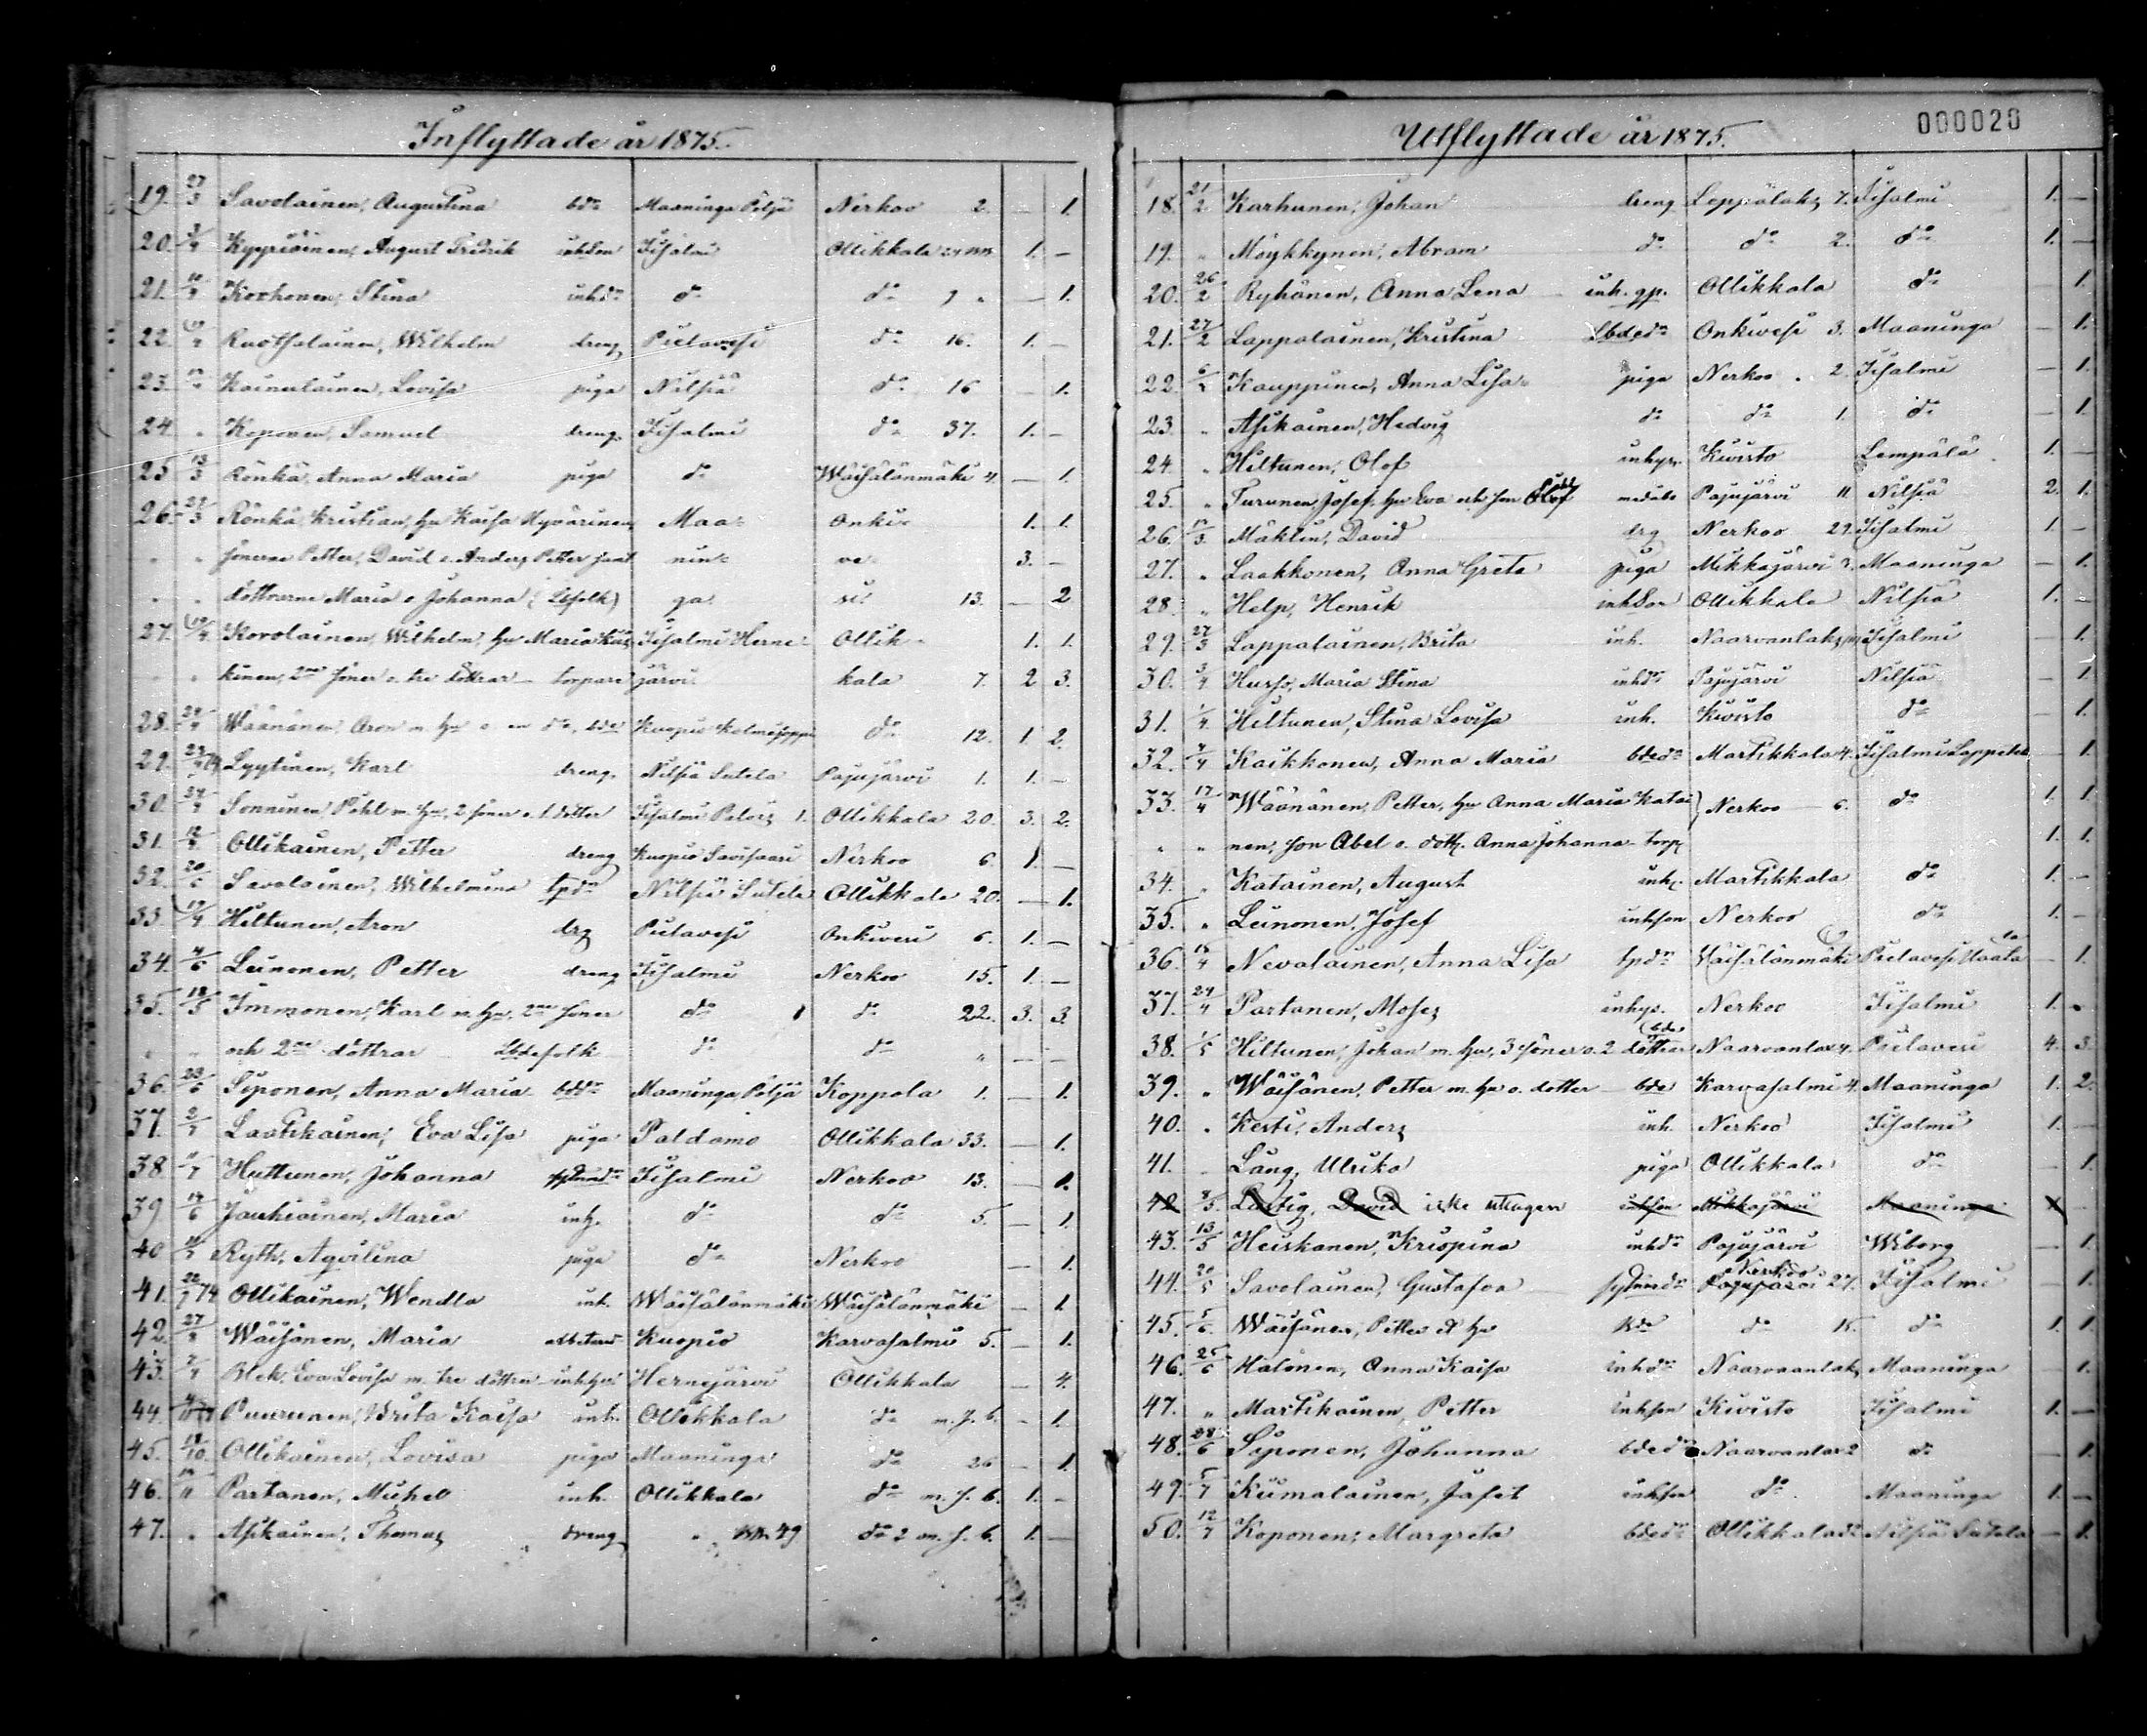 Inflyttade år 1875.
19. 27/3 Savolainen, Augustina bdn Maaninga Pöljä Nerkoo 2. — 1.
20. 3/4 Kyyriäinen, August Fredrik inhson Iisalmi Ollikkala 1. —
21. Korhonen, Stina inhdr do do 9 — 1.
22. Ruotsalainen, Wilhelm dreng Pielavesi do 16. 1. —
23. Kainulainen, Lovisa piga Nilsiä do 16 — 1.
24. " Koponen, Samuel dreng Iisalmi do 37. 1. —
25 13/3 Rönkä, Anna Maria piga do Wäisälänmäki 4. — 1.
26. 27/3 Rönkä, Kristian, hu Kaisa Hyvärinen Maa= Onki= 1. 1.
" " sönerne Petter, David o. Anders Petter samt nin= ve= 3. —
" " döttrarne Maria o Johanna (Lösfolk) ga. si. 13. — 2
27. Korolainen, Wilhelm, hu Maria Kais Iisalmi Herne= Ollik= 1. 1.
" " kinen, 2ne söner o. tre döttrar — torpare järvi kala 7. 2 3.
28. 24/4 Wäänänen, Aron m. hu o en dr, bde Kuopio Kolmisoppi do 12. 1 2.
29. Lyytinen, Karl dreng Nilsiä Sutela Pajujärvi 1. 1. —
30. 24/4 Sonninen Påhl m. hu, 2 söner o. 1 dotter Iisalmi Palois 1. Ollikkala 20. 3. 2.
31. Ollikainen, Petter dreng Kuopio Savisaari Nerkoo 6. 1. —
32. 20/5 Savolainen, Wilhelmina tpdr Nilsiä Sutela Ollikkala 20. — 1.
33. 19/4 Hiltunen, Aron drg Pielavesi Onkivesi 6. 1. —
34. 4/5 Leinonen, Petter dreng Iisalmi Nerkoo 15. 1. —
35. 18/5 Immonen, Karl m. hu, 2ne söner do do 22. 3. 3.
" " och 2ne döttrar Lbdefolk do do " — —
36. 23/5 Siponen, Anna Maria bddr Maaninga Pöljä Koppola 1. — 1.
37. 2/7 Laatikainen, Eva Lisa piga Paldamo Ollikkala 33. — 1.
38 Huttunen, Johanna Iisalmi Nerkoo 13. — 1.
39. 14/6 Jauhiainen, Maria inh. do do 5. — 1.
40 Ryth, Aqvilina piga do Nerkoo — 1.
41. Ollikainen, Wendla inh. Wäisälänmäki Wäisälänmäki — 1.
42. 27/8 Wäisänen, Maria Kuopio Karvasalmi 5. — 1.
43. Blek. Eva Lovisa m. tre döttrar Hernejärvi Ollikkala — 4.
44. Puurunen, Brita Kaisa inh. Ollikkala do m. f. b. — 1.
45. 18/10 Ollikainen, Lovisa piga Maaninga do 26 — 1.
46. Partanen, Michel inh. Ollikkala do m. f. b. 1. —
47. " Asikainen, Thomas dreng " 49 do 2 m. f. b. 1. —
Utflyttade år 1875.
000020
18. 21/2 Karhunen, Johan dreng Leppälaks 7. Iisalmi 1. —
19. " Möykkynen, Abram do do 2. do 1. —
20. 26/2 Ryhänen, Anna Lena inh. gp. Ollikkala do — 1.
21. 27/2 Lappalainen, Kristina Lbdedr Onkivesi 3. Maaninga — 1.
22. Kauppinen, Anna Lisa piga Nerkoo 2. Iisalmi — 1.
23. " Asikainen, Hedvig do do 1. do — 1.
24. " Hiltunen, Olof inhys. Kivisto Lempälä 1. —
25. " Turunen Josef, hu Eva och son Olof Pajujärvi 11. Nilsiä 2. 1.
26. Mäklin, David drg Nerkoo 29. Iisalmi 1. —
27. " Laakkonen, Anna Greta piga Mikkajärvi 3. Maaninga — 1.
28. " Help, Henrik inhson Ollikkala Nilsiä 1. —
29. 27/3 Lappalainen, Brita inh. Naarvanlaks Iisalmi — 1.
30. 3/4 Husso, Maria Stina inhdr Pajujärvi Nilsiä — 1.
31. 1/4 Hiltunen, Stina Lovisa inh. Kivisto do — 1.
32. 7/4 Kaikkonen, Anna Maria bdedr Martikkala 4. Iisalmi Lappetelä — 1.
33. 17/4 Wäänänen, Petter, hu Anna Maria Katai Nerkoo 6. do 1. 1.
" " nen, son Abel o. dott. Anna Johanna torp. 1. 1.
34. " Katainen, August inh. Martikkala do 1. —
35. " Leinonen, Josef inhson Nerkoo do 1. —
36. 18/4 Nevalainen, Anna Lisa tpdr Wäisälänmäki Pielavesi — 1.
37. 24/4 Partanen, Moses inhys. Nerkoo Iisalmi 1. —
38. 1/5 Hiltunen, Johan m. hu, 3 söner o. 2 döttrar bde Naarvanlax 4. Pielavesi 4. 3.
39. " Wäisänen, Petter m. hu o. dotter bde Karvasalmi 4. Maaninga 1. 2.
40. " Kesti, Anders inh. Nerkoo Iisalmi 1. —
41. Lång, Ulrika piga Ollikkala do — 1.
42 8/5 Lustig, David icke uttagen inhson Mikkajärvi Maaninga
43. 13/5 Heiskanen, Krispina inhdr Pajujärvi Wiborg — 1.
44. 20/5 Savolainen, Gustafva Pajujärvi Nerkoo 27. Iisalmi — 1.
45. 5/6 Wäisänen, Petter o hu bde do 15. do 1. 1.
46. 25/6 Halonen, Anna Kaisa inhdr Naarvanlaks Maaninga 1.
47. " Martikainen Petter inhson Kivisto Iisalmi 1. —
48. 28/6 Siponen, Johanna bdedr Naarvanlax 2 do — 1.
49. 5/7 Kumalainen, Jafet inhson do Maaninga 1. —
50. 12/7 Koponen, Margreta bdedr Ollikkala Nilsiä Sutela — 1.